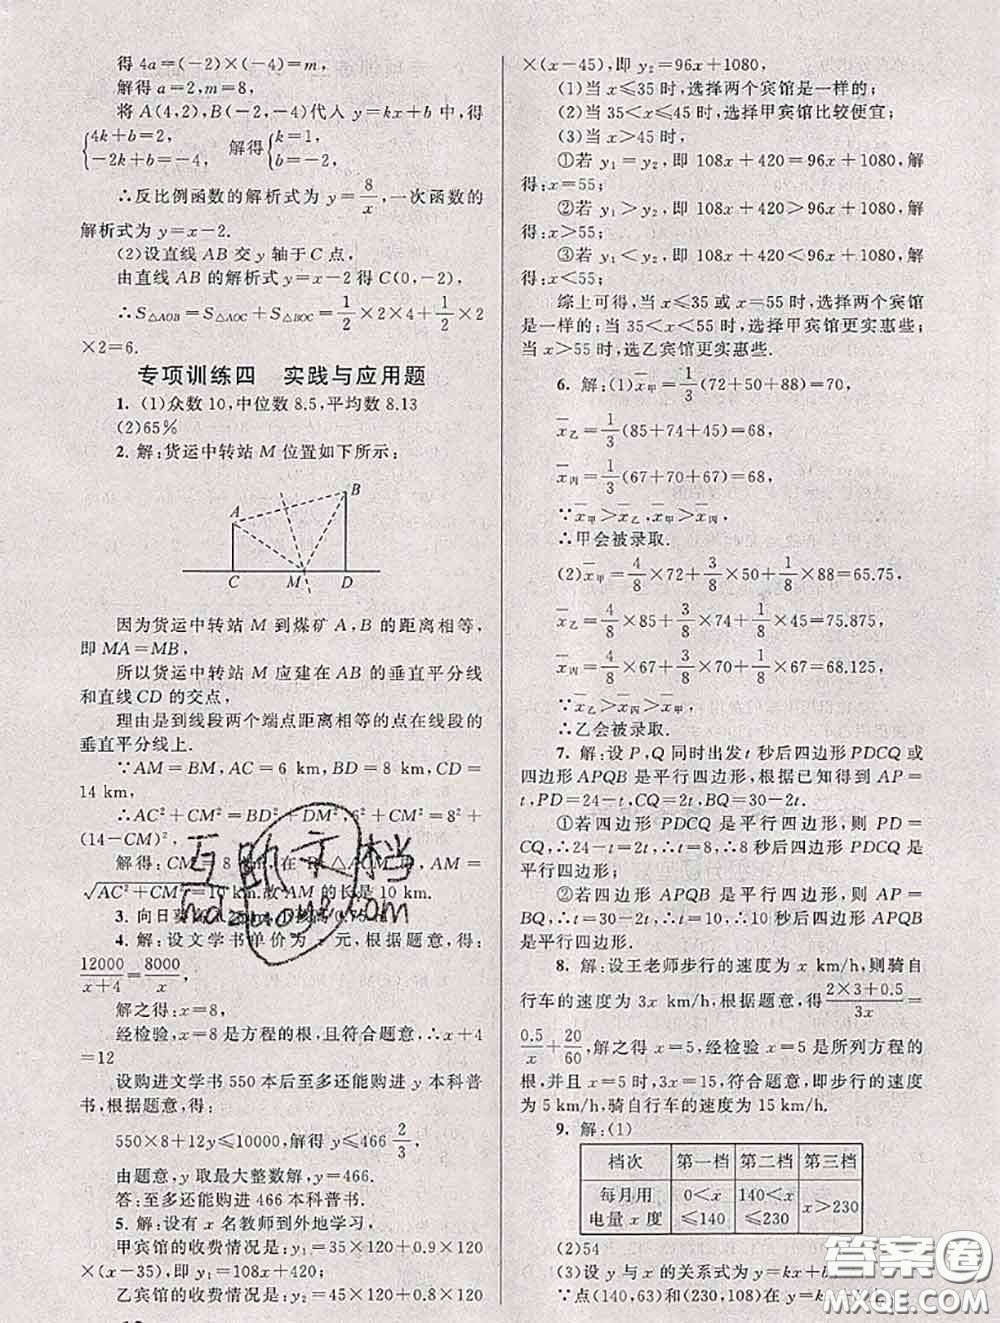 得 4a=(-2)×(-4)=m,
解得 a=2,m=8,
将 A(4,2),B(-2,-4)代人 y=kx+b 中,得
{4k+b=2, -2k+b=-4, 解得{k=1, b=-2.
∴反比例函数的解析式为 y=8/x,一次函数的
解析式为 y=x-2.
(2)设直线 AB 交 y 轴于 C 点,
由直线 AB 的解析式 y=x-2 得 C(0,-2),
∴S△AOB=S△AOC+S△BOC=1/2×2×4+1/2×2
×2=6.
专项训练四 实践与应用题
1. (1)众数 10,中位数 8.5,平均数 8.13
(2)65%
2. 解:货运中转站 M 位置如下所示:
A
B
C M D
因为货运中转站 M 到煤矿 A,B 的距离相等,
即 MA=MB,
所以货运中转站 M 应建在 AB 的垂直平分线
和直线 CD 的交点,
理由是到线段两个端点距离相等的点在线段的
垂直平分线上.
∵AM=BM,AC=6 km,BD=8 km,CD=
14 km,
∴AC²+CM²=BD²+DM²,6²+CM²=8²+
(14-CM)²,
解得:CM=8 km,在 Rt△ACM 中,AM=
√AC²+CM²=10 km.故 AM 的长是 10 km.
3. 向日葵
4. 解:设文学书单价为 x 元,根据题意,得:
12000/(x+4)=8000/x,
解之得:x=8,
经检验,x=8 是方程的根,且符合题意,∴x+4
=12
设购进文学书 550 本后至多还能购进 y 本科普
书,根据题意,得:
550×8+12y≤10000,解得 y≤466 2/3,
由题意,y 取最大整数解,y=466.
答:至多还能购进 466 本科普书.
5. 解:设有 x 名教师到外地学习,
甲宾馆的收费情况是:y₁=35×120+0.9×120
×(x-35),即 y₁=108x+420;
乙宾馆的收费情况是:y₂=45×120+0.8×120
×(x-45),即 y₂=96x+1080,
(1)当 x≤35 时,选择两个宾馆是一样的;
(2)当 35<x≤45 时,选择甲宾馆比较便宜;
(3)当 x>45 时,
①若 y₁=y₂,即 108x+420=96x+1080,解
得:x=55;
②若 y₁>y₂,即 108x+420>96x+1080,解
得:x>55;
③若 y₁<y₂,即 108x+420<96x+1080,解
得:x<55;
综上可得,当 x≤35 或 x=55 时,选择两个宾馆
是一样的;当 35<x<55 时,选择甲宾馆更实惠些;
当 x>55 时,选乙宾馆更实惠些.
6. 解:(1)x̄甲=1/3(72+50+88)=70,
x̄乙=1/3(85+74+45)=68,
x̄丙=1/3(67+70+67)=68,
∵x̄甲>x̄乙,x̄甲>x̄丙,
∴甲会被录取.
(2)x̄甲=4/8×72+3/8×50+1/8×88=65.75,
x̄乙=4/8×85+3/8×74+1/8×45=75.875,
x̄丙=4/8×67+3/8×70+1/8×67=68.125,
∵x̄乙>x̄丙>x̄甲,
∴乙会被录取.
7. 解:设 P,Q 同时出发 t 秒后四边形 PDCQ 或
四边形 APQB 是平行四边形,根据已知得到 AP=
t,PD=24-t,CQ=2t,BQ=30-2t.
①若四边形 PDCQ 是平行四边形,则 PD=
CQ,∴24-t=2t,∴t=8,∴8 秒后四边形 PDCQ 是
平行四边形;
②若四边形 APQB 是平行四边形,则 AP=
BQ,∴t=30-2t,∴t=10,∴10 秒后四边形 APQB
是平行四边形.
8. 解:设王老师步行的速度为 x km/h,则骑自
行车的速度为 3x km/h,根据题意,得(2×3+0.5)/3x=
0.5/x+20/60,解之得 x=5,经检验 x=5 是所列方程的
根,并且 x=5 时,3x=15,符合题意,即步行的速度
为 5 km/h,骑自行车的速度为 15 km/h.
9. 解:(1)
档次 第一档 第二档 第三档
每月用电量 x 度 0<x≤140 140<x≤230 x>230
(2)54
(3)设 y 与 x 的关系式为 y=kx+b
∵点(140,63)和(230,108)在 y=k
互助文档
hdzuoye.com
答案圈
MXQE.COM